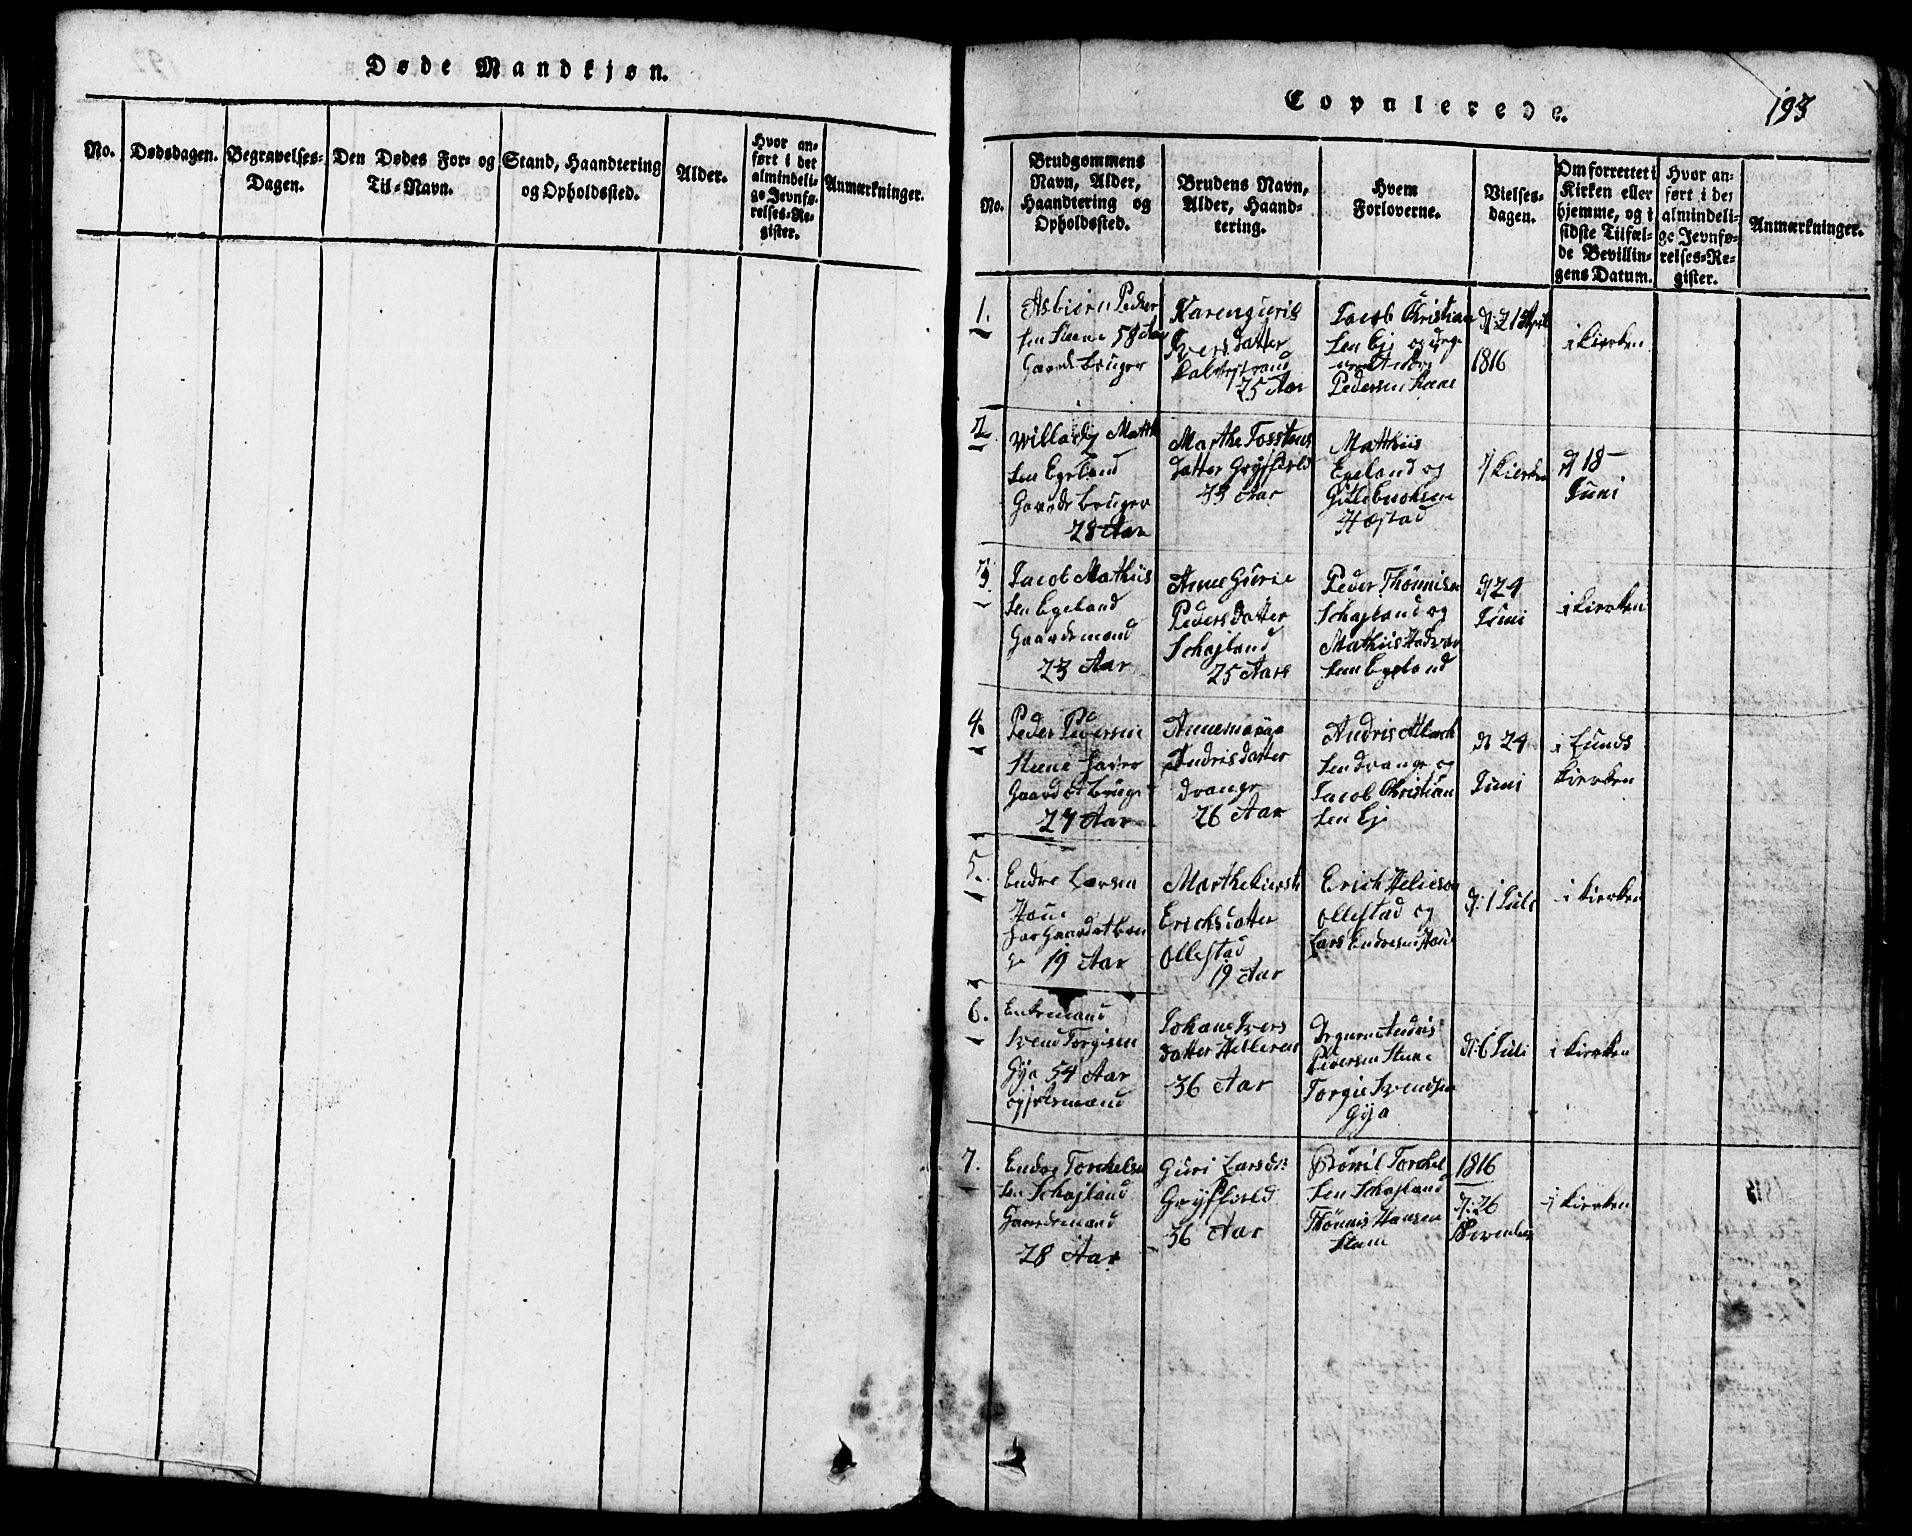 Døde Mandkjøn.
No.
Dødsdagen.
Begravelses-
Dagen.
Den Dødes For- og
Til-Navn.
Stand, Haandtering
og Opholdssted.
Alder.
Hvor an-
ført i det
almindeli-
ge Jevnfø-
relses-Re-
gister.
Anmærkninger.
Copulerede.
193
No.
Brudgommens
Navn, Alder,
Haandtering og
Opholdssted.
Brudens Navn,
Alder, Haand-
tering.
Hvem
Forloverne.
Vielses-
dagen.
Om forrettet i
Kirken eller
hjemme, og i
sidste Tilfæl-
de Bevillin-
gens Datum.
Hvor an-
ført i det
almindeli-
ge Jevnfø-
relses-Re-
gister.
Anmærkninger.
1.
Asbiørn Peder
sen Steene 58 Aar
Gaardbruger
Karengurie
Iversdatter
25 Aar
Jacob Christian
sen Eje og
Pedersen Steene
d: 21 April
1816
i Kierken
2
Matth
sen Egeland
Gaardbruger
28 Aar
Marthe Tosstens
datter Grøsfield
33 Aar
Matthiis
Egeland og
Hæstad
i Kierken
d 18
Juni
3.
Jacob Mathiis
sen Egeland
Gaardemand
23 Aar
Anne Gurie
Pedersdatter
Schajland
25 Aar
Peder Thønnisen
Schajland og
Mathiis
sen Egeland
d 24
Juni
i Kierken
4.
Peder Pedersen
Steene
27 Aar
Andrisdatter
Drange
26 Aar
Andris
sen Drange og
Jacob Christian
sen Eje
d 24
Juni
i Lunds
Kierken
5.
Endre Larsen
Haue
19 Aar
Marthe
Erichsdatter
Ollestad
19 Aar
Erich Helieson
Ollestad og
Lars Endresen Haue
d: 1 Juli
i Kierken
6.
Enkemand
Svend Torgisen
Gya 54 Aar
Johane Ivers
datter Helleren
36 Aar
Andris
Pedersen Steene
Torgie Svendsen
Gya
d: 6 Juli
i Kierken
7.
Endre Torchels
sen Schajland
Gaardemand
28 Aar
Guri Larsdr:
Grøsfield
36 Aar
Torchel
sen Schajland
Thønnis Hansen
1816
d: 26
November
i Kierken